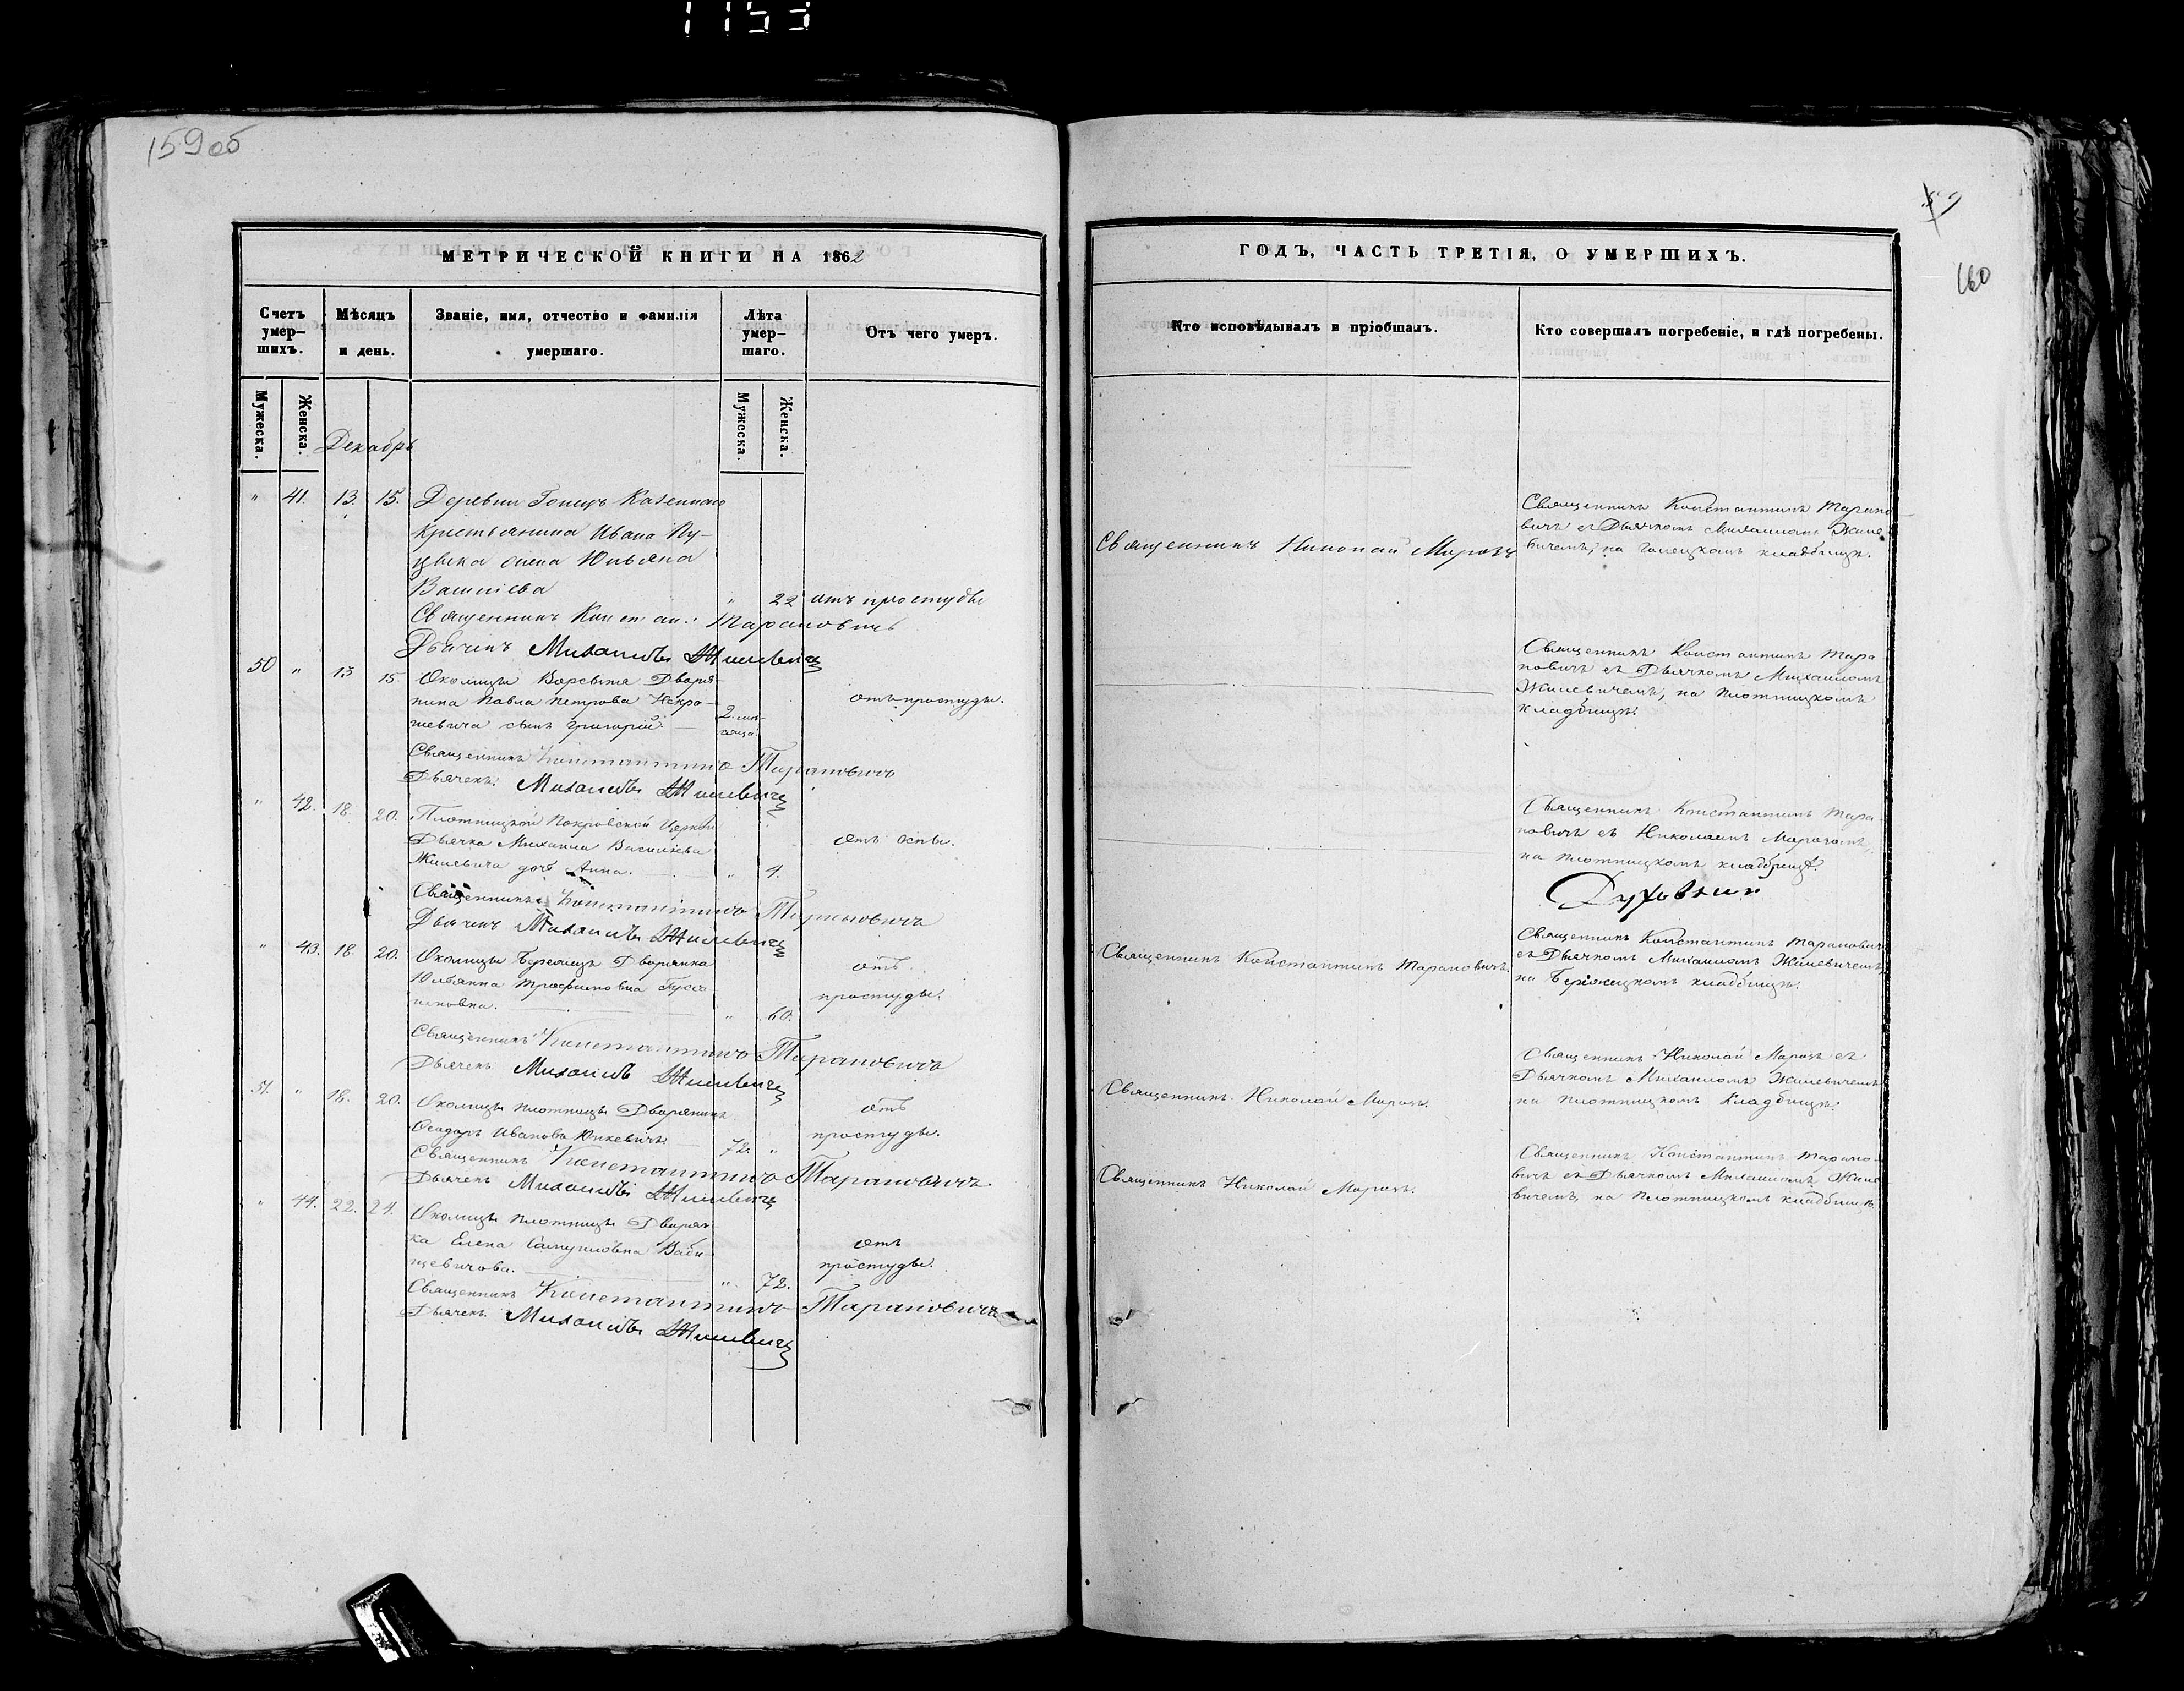 1153
159об
МЕТРИЧЕСКОЙ КНИГИ НА 1862
Счетъ умер-шихъ.
Мѣсяцъ и день.
Званіе, имя, отчество и фамилія умершаго.
Лѣта умер-шаго.
Отъ чего умеръ.
Мужеска.
Женска.
Декабрь
Мужеска.
Женска.
" 41. 13. 15. Деревни Гоницъ Казеннаго
крестьянина Ивана
Юльяна
" 22 отъ простуды
Священникъ Констан: Тарановичъ
Дьячекъ Михаилъ Жилевичъ
50 " 13 15 Околицы Дворя-
нина Павла Петрова Некра-
шевича сынъ Григорій. 2. мѣ-сяца отъ простуды.
Священникъ Константинъ Тарановичъ
Дьячекъ: Михаилъ Жилевичъ
" 42. 18. 20. Плотницкой Покровской Церкви
Дьячка Михаила Васильева отъ оспы.
Жилевича дочь Анна. " 4.
Священникъ Константинъ Тарановичъ
Дьячекъ Михаилъ Жилевичъ
" 43. 18. 20. Околицы Бережецъ Дворянка отъ
Юльянна Трофимовна простуды.
" 60.
Священникъ Константинъ Тарановичъ
Дьячекъ Михаилъ Жилевичъ
51. " 18. 20. Околицы Плотницы Дворянинъ отъ
Ѳеодоръ Ивановъ Юхневичъ 72. " простуды.
Священникъ Константинъ Тарановичъ
Дьячекъ Михаилъ Жилевичъ
" 44. 22. 24. Околицы Плотницы Дворян-
ка Елена Самуиловна Баби- отъ
щевичова. " 72. простуды.
Священникъ Константинъ Тарановичъ
Дьячекъ Михаилъ Жилевичъ
160
ГОДЪ, ЧАСТЬ ТРЕТІЯ, О УМЕРШИХЪ.
Кто исповѣдывалъ и пріобщалъ.
Кто совершалъ погребеніе, и гдѣ погребены.
Священникъ Николай Марозъ
Священникъ Константинъ Тарано-
вичъ съ Дьячкомъ Михаиломъ Жиле-
вичемъ, на Гонецкомъ кладбищѣ.
Священникъ Константинъ Тара-
новичъ съ Дьячкомъ Михаиломъ
Жилевичемъ, на Плотницкомъ
кладбищѣ.
Священникъ Константинъ Тара-
новичъ съ Николаемъ Марозомъ,
на Плотницкомъ кладбищѣ.
Духовный
Священникъ Константинъ Тарановичъ.
Священникъ Константинъ Тарановичъ
съ Дьячкомъ Михаиломъ Жилевичемъ,
на Бережецкомъ кладбищѣ.
Священникъ Николай Марозъ.
Священникъ Николай Марозъ съ
Дьячкомъ Михаиломъ Жилевичемъ
на Плотницкомъ кладбищѣ.
Священникъ Николай Марозъ.
Священникъ Константинъ Тарано-
вичъ съ Дьячкомъ Михаиломъ Жиле-
вичемъ, на Плотницкомъ кладбищѣ